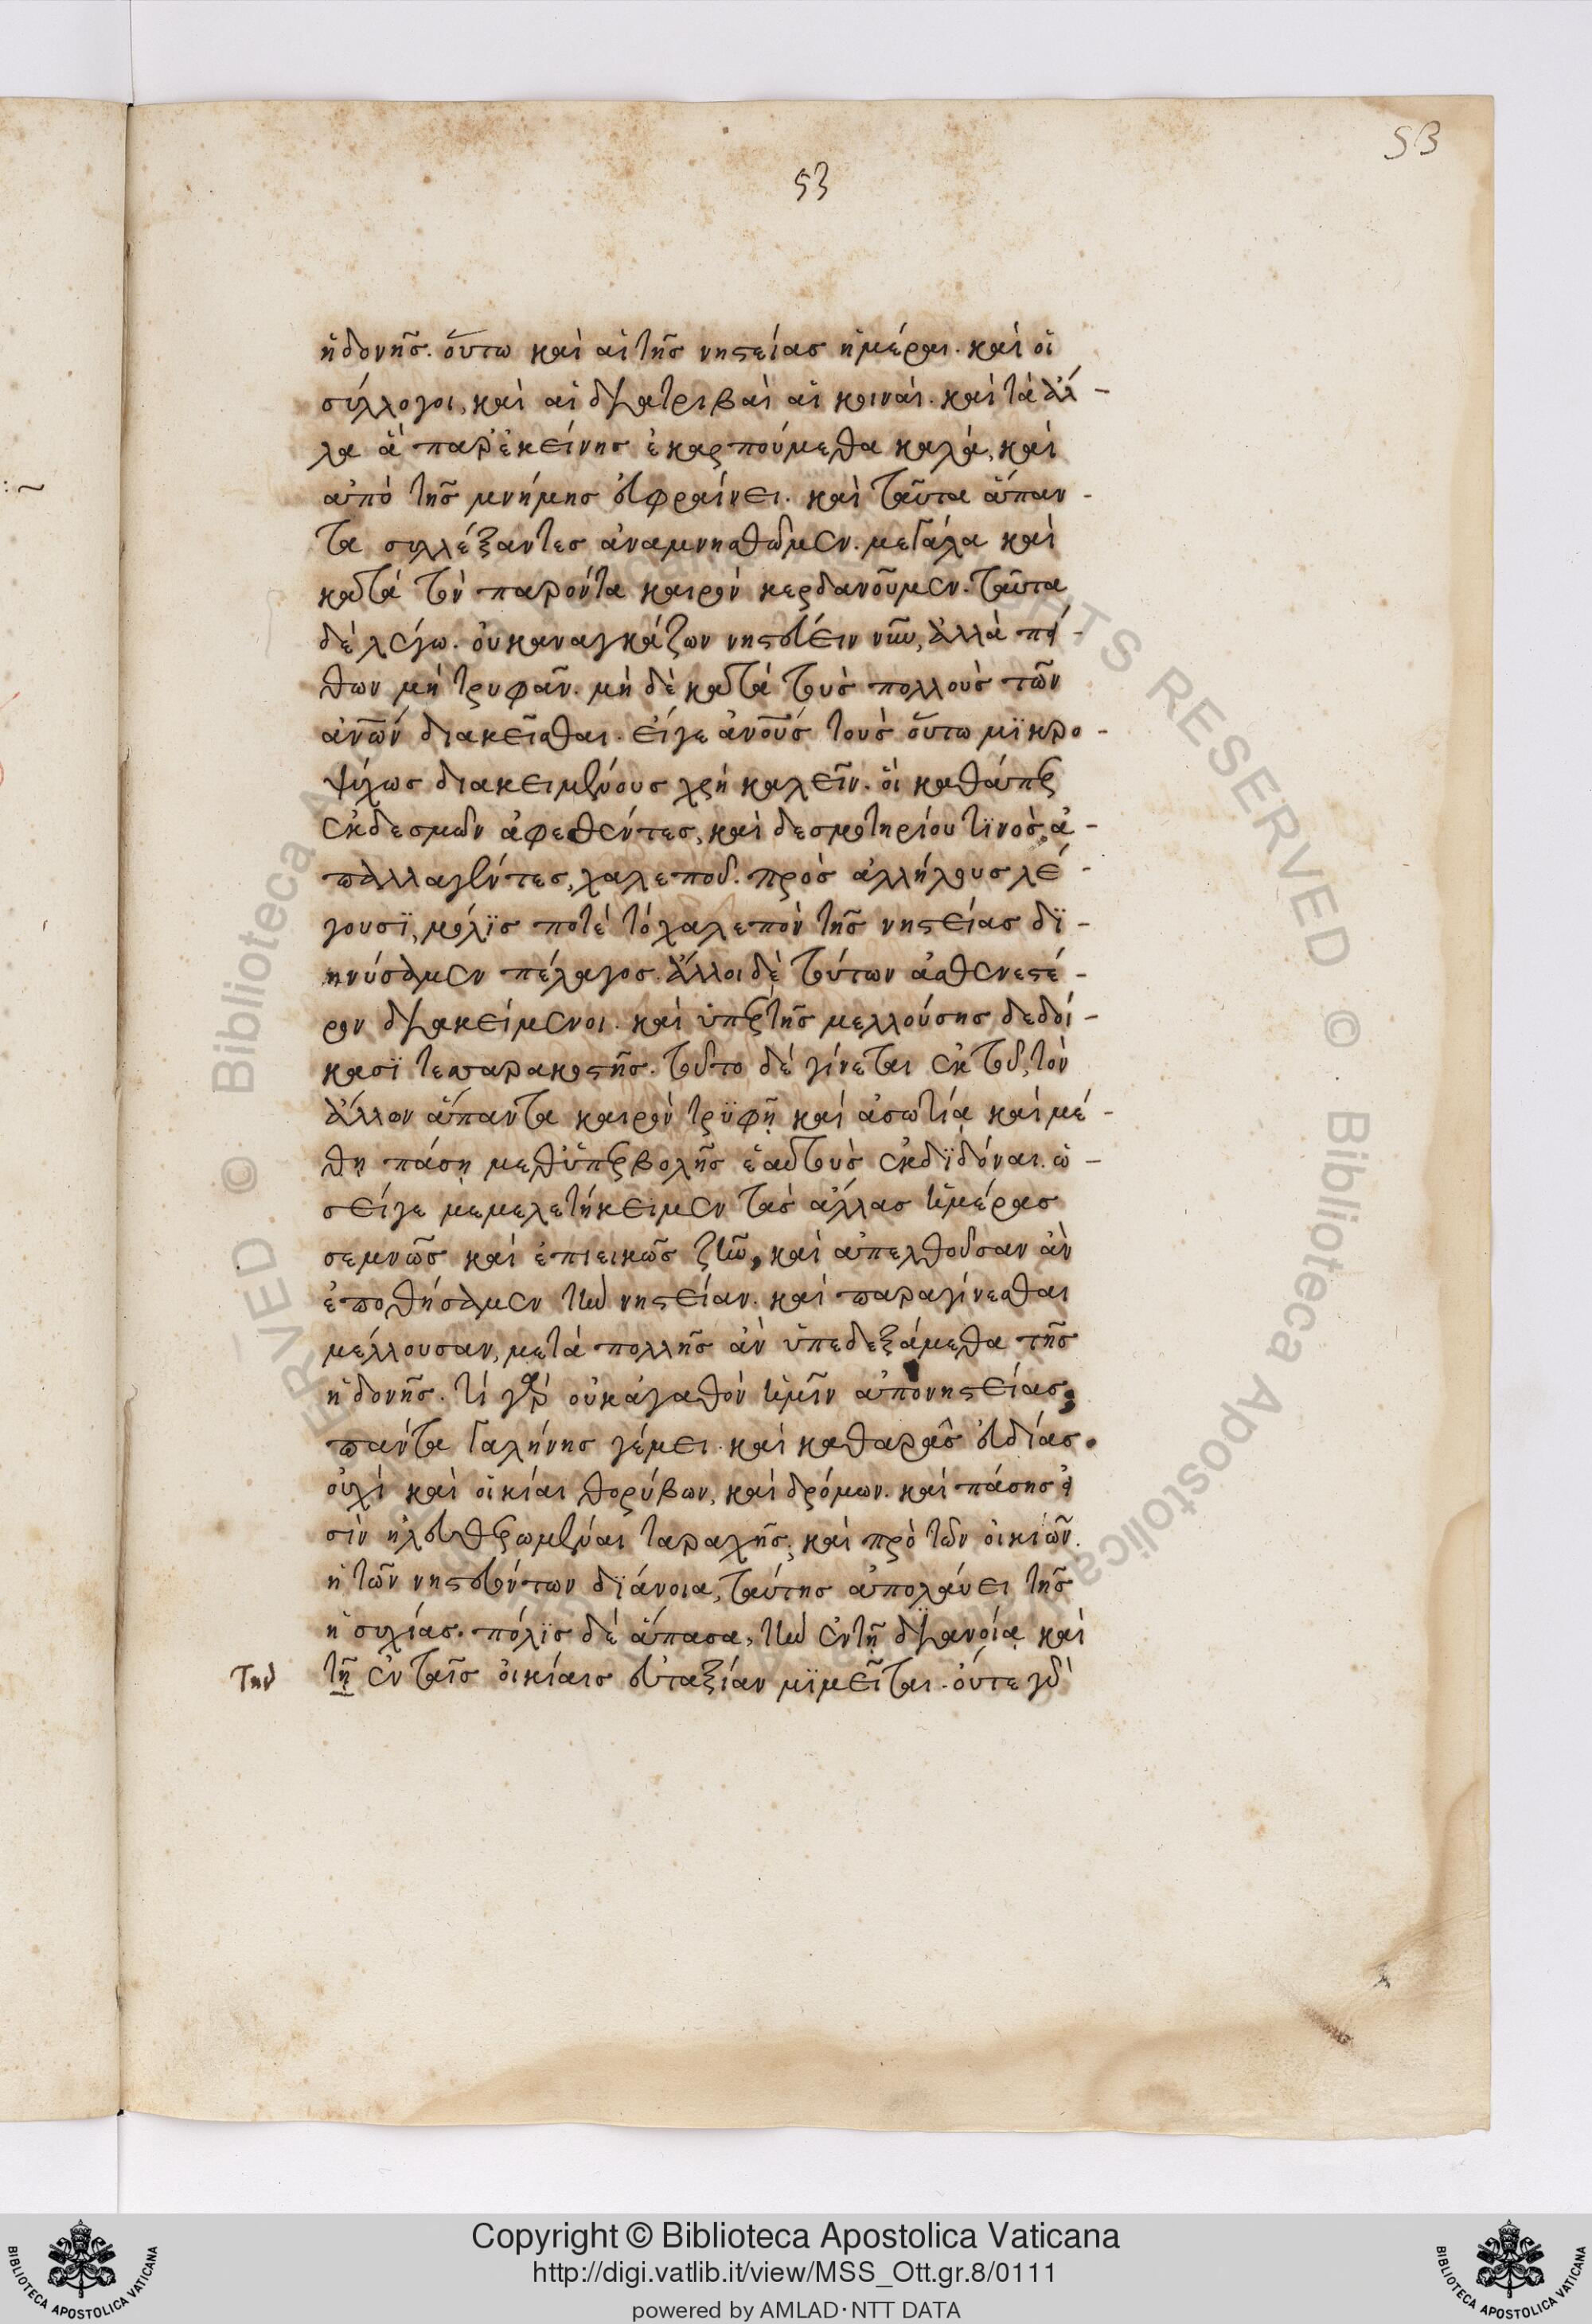 53
53
ἡδονῆς. οὕτω καὶ αἱ τῆς νηστείας ἡμέραι. καὶ οἱ
σύλλογοι, καὶ αἱ διατριβαὶ αἱ κοιναὶ. καὶ τὰ ἄλ-
λα ἃ παρ' ἐκείνης ἐκαρπούμεθα καλά, καὶ
ἀπὸ τῆς μνήμης εὐφραίνει. καὶ ταῦτα ἅπαν-
τα συλλέξαντες ἀναμνησθῶμεν. μεγάλα καὶ
κατὰ τὸν παρόντα καιρὸν κερδανοῦμεν. ταῦτα
δὲ λέγω. οὐκ ἀναγκάζων νηστεύειν νῦν, ἀλλὰ πεί-
θων μὴ τρυφᾶν. μὴ δὲ κατὰ τοὺς πολλοὺς τῶν
ἀνῶν διακεῖσθαι. εἴγε ἀνοῦς τοὺς οὕτω μικρο-
ψύχως διακειμένους χρὴ καλεῖν. οἳ καθάπερ
ἐκ δεσμῶν ἀφεθέντες, καὶ δεσμωτηρίου τινὸς ἀ-
παλλαγέντες, χαλεποῦ. πρὸς ἀλλήλους λέ-
γουσι, μόλις ποτὲ τὸ χαλεπὸν τῆς νηστείας δι-
ηνύσαμεν πέλαγος. ἄλλοι δὲ τούτων ἀσθενεστέ-
ρον διακείμενοι. καὶ ὑπὲρ τῆς μελλούσης δεδοί-
κασι τεσσαρακοστῆς. τοῦτο δὲ γίνεται ἐκ τοῦ, τὸν
ἄλλον ἅπαντα καιρὸν τρυφῇ καὶ ἀσωτίᾳ καὶ μέ-
θη πάση μεθ' ὑπερβολῆς ἑαυτοὺς ἐκδιδόναι. ὡ-
ς εἴγε μεμελετήκειμεν τὰς ἄλλας ἡμέρας
σεμνῶς καὶ ἐπιεικῶς ζῆν, καὶ ἀπελθοῦσαν ἂν
ἐποθήσαμεν τὴν νηστείαν. καὶ παραγίνεσθαι
μέλλουσαν, μετὰ πολλῆς ἂν ὑπεδεξάμεθα τῆς
ἡδονῆς. τί γὰρ οὐκ ἀγαθὸν ἡμῖν ἀπὸ νηστείας;
πάντα γαλήνης γέμει. καὶ καθαρᾶς εὐδίας.
οὐχὶ καὶ οἰκίαι θορύβων, καὶ δρόμων. καὶ πάσης εἰ
σὶν ἠλευθερωμέναι ταραχῆς; καὶ πρὸ τῶν οἰκιῶν.
ἡ τῶν νηστευόντων διάνοια, ταύτης ἀπολαύει τῆς
ἡσυχίας. πόλις δὲ ἅπασα, τὴν ἐν τῇ διανοίᾳ καὶ
τὴν τῇ ἐν ταῖς οἰκίαις εὐταξίαν μιμεῖται. οὔτε γὰρ
Copyright © Biblioteca Apostolica Vaticana
http://digi.vatlib.it/view/MSS_Ott.gr.8/0111
powered by AMLAD·NTT DATA
BIBLIOTECA APOSTOLICA VATICANA
BIBLIOTECA APOSTOLICA VATICANA